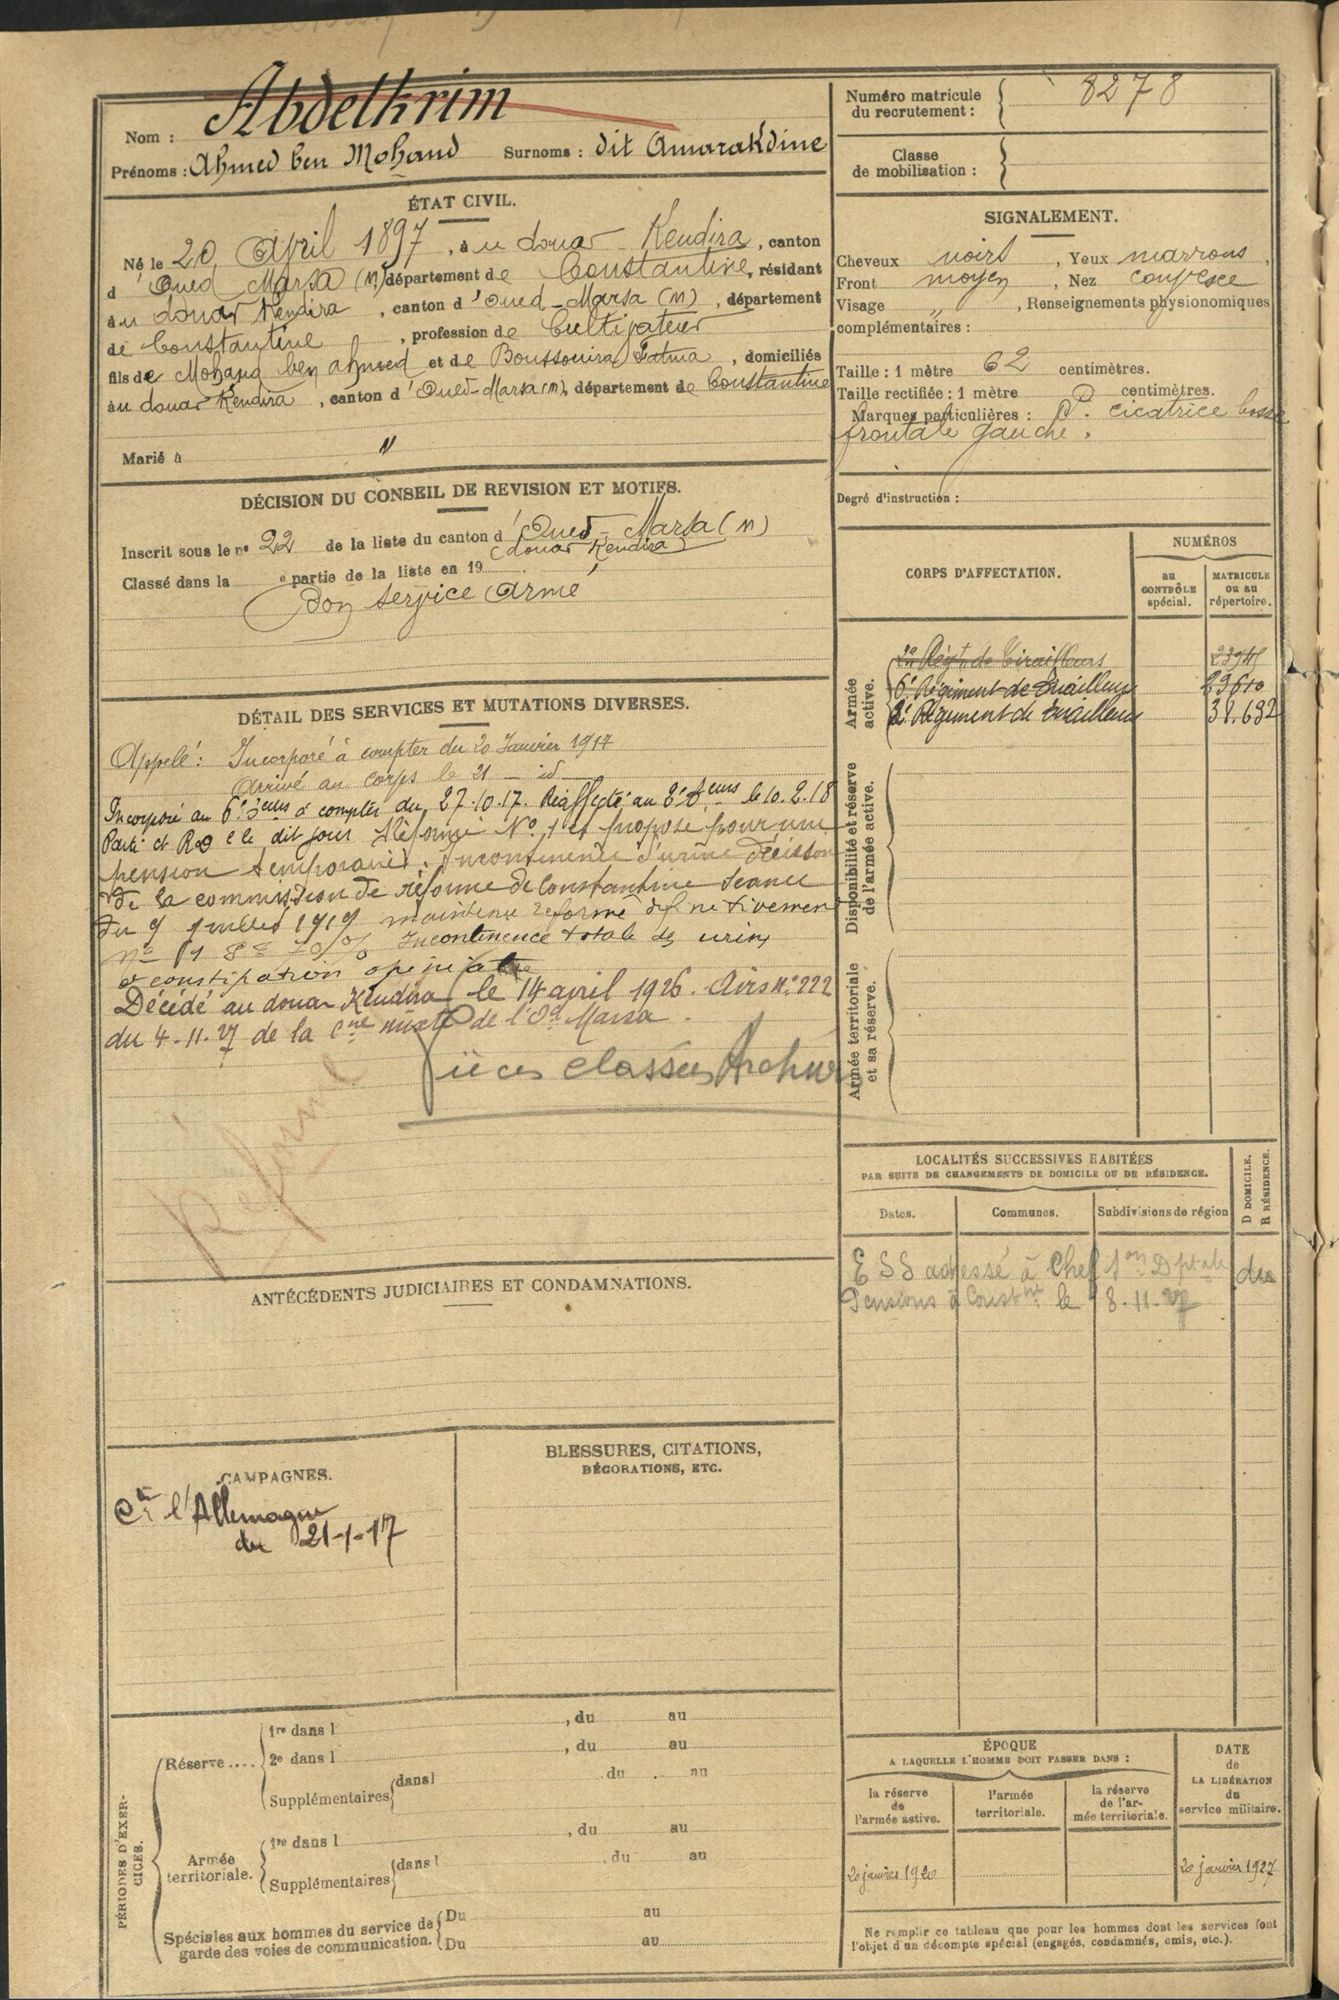 Nom : Abdelkrim
Prénoms : Ahmed ben Mohand Surnoms : dit Amarakdine
ÉTAT CIVIL.
Né le 20 April 1897, à u douar Kendira, canton
d' Oued Marsa (M) département de Constantine, résidant
à u douar Kendira, canton d' Oued-Marsa (M), département
de Constantine, profession de Cultivateur
fils de Mohand ben Ahmed et de Boussouira Fatma, domiciliés
à u douar Kendira, canton d' Oued-Marsa (M), département de Constantine
Marié à "
DÉCISION DU CONSEIL DE REVISION ET MOTIFS.
Inscrit sous le n° 22 de la liste du canton d' Oued-Marsa (M)
(douar Kendira)
Classé dans la e partie de la liste en 19
Bon service armé
DÉTAIL DES SERVICES ET MUTATIONS DIVERSES.
Appelé : Incorporé à compter du 20 Janvier 1917
Arrivé au corps le 21 - id -
Incorporé au 6e à compter du 27.10.17. Réaffecté au 2e le 10.2.18
Parti et le dit jour Réformé No 1 et proposé pour une
pension temporaire. Incontinence d'urine Décision
de la commission de réforme de Constantine séance
du 9 1919 maintenu réformé définitivement
no 1 70 % Incontinence totale des urines
et constipation opiniâtre
Décédé au douar Kendira le 14 avril 1926. Avis n° 222
du 4-11-27 de la Cne mixte de l'Od Marsa.
Pièces classées Archives
Réformé
ANTÉCÉDENTS JUDICIAIRES ET CONDAMNATIONS.
CAMPAGNES.
Cre l'Allemagne
du 21-1-17
BLESSURES, CITATIONS,
DÉCORATIONS, ETC.
PÉRIODES D'EXERCICES.
Réserve ....
1re dans l , du au
2e dans l , du au
Supplémentaires dans l du au
Armée territoriale.
1re dans l , du au
Supplémentaires dans l du au
Spéciales aux hommes du service de
garde des voies de communication.
Du au
Du au
Numéro matricule
du recrutement : 8278
Classe
de mobilisation :
SIGNALEMENT.
Cheveux noirs, Yeux marrons,
Front moyen, Nez convexe
Visage ", Renseignements physionomiques
complémentaires :
Taille : 1 mètre 62 centimètres.
Taille rectifiée : 1 mètre centimètres.
Marques particulières : P. cicatrice bosse
frontale gauche.
Degré d'instruction :
CORPS D'AFFECTATION.
NUMÉROS
au
CONTRÔLE
spécial.
MATRICULE
ou au
répertoire.
Armée
active.
2e Régt de Tirailleurs
6e Régiment de Tirailleurs 29610
2e Régiment de Tirailleurs 31.632
Disponibilité et réserve
de l'armée active.
Armée territoriale
et sa réserve.
LOCALITÉS SUCCESSIVES HABITÉES
PAR SUITE DE CHANGEMENTS DE DOMICILE OU DE RÉSIDENCE.
Dates. Communes. Subdivisions de région
D DOMICILE.
R RÉSIDENCE.
ESS adressé à Chef Son Dptale des
Pensions à Constne le 8-11-27
ÉPOQUE
A LAQUELLE L'HOMME DOIT PASSER DANS :
la réserve
de
l'armée active.
l'armée
territoriale.
la réserve
de l'ar-
mée territoriale.
DATE
de
LA LIBÉRATION
du
service militaire.
20 janvier 1920
20 janvier 1927
Ne remplir ce tableau que pour les hommes dont les services font
l'objet d'un décompte spécial (engagés, condamnés, omis, etc.).